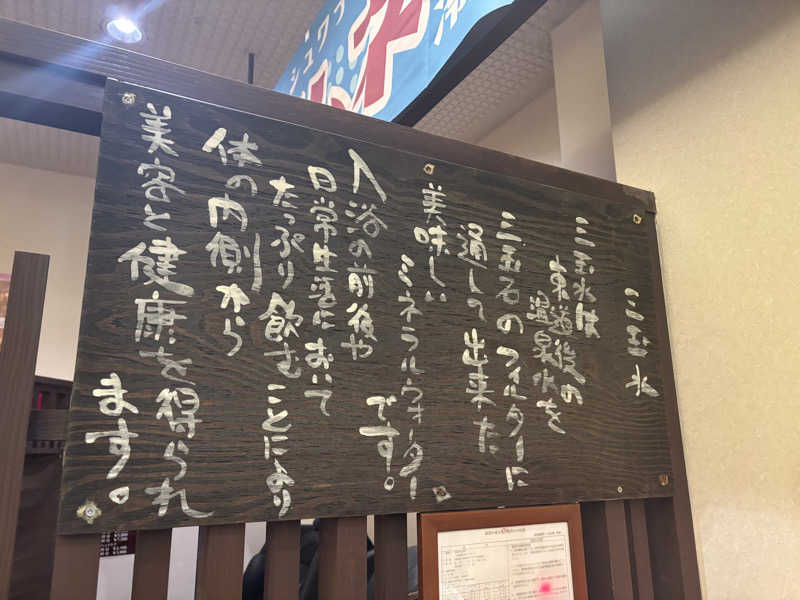 三玉水
三玉水は
東道後の
温泉水を
三玉石のフィルターに
通して出来た
美味しい
ミネラルウォーター
です。
入浴の前後や
日常生活において
たっぷり飲む
ことにより
体の内側から
美容と健康を得られ
ます。